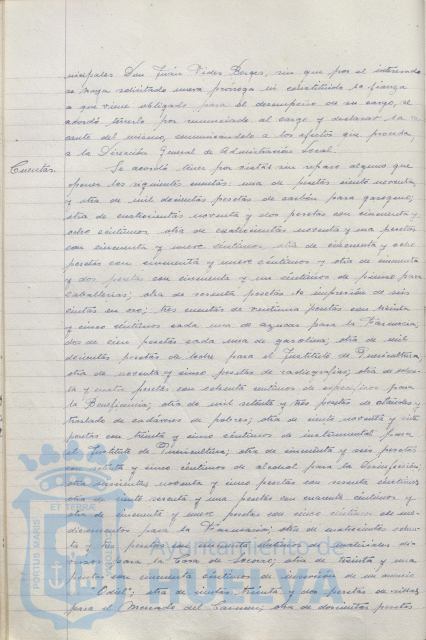 nicipales Don Juan Vides Borges, sin que por el interesado
se haya solicitado nueva prórroga ni constituido la fianza
a que viene obligado para el desempeño de su cargo, se
acordó tenerlo por renunciado al cargo y declarar la va
cante del mismo, comunicándolo a los efectos que proceda,
a la Dirección General de Administración Local.
Cuentas. Se acordó tener por vistas sin reparo alguno que
oponer las siguientes cuentas: una de pesetas ciento noventa
y otra de mil doscientas pesetas de carbón para gasógeno;
otra de cuatrocientas noventa y dos pesetas con cincuenta y
ocho céntimos otra de cuatrocientas noventa y una pesetas
con cincuenta y nueve céntimos otra de cincuenta y ocho
pesetas con cincuenta y nueve céntimos y otra de cincuenta
y dos pesetas con cincuenta y un céntimos de pienso para
caballerías; otra de sesenta pesetas de impresión de seis
cintas en oro; tres cuentas de veintiuna pesetas con treinta
y cinco céntimos cada una de azucar para la Farmacia;
dos de cien pesetas cada una de gasolina; otra de mil
doscientas pesetas de leche para el Instituto de Puericultura;
otra de noventa y cinco pesetas de radiografías; otra de
y cuatro pesetas con ochenta céntimos de específicos para
la Beneficencia; otra de mil setenta y tres pesetas de ataudes y
traslado de cadáveres de pobres; otra de ciento noventa y siete
pesetas con treinta y cinco céntimos de instrumental para
el Instituto de Puericultura; otra de cincuenta y seis pesetas
con setenta y cinco céntimos de alcohol para la Desinfección;
otra doscientas noventa y cinco pesetas con sesenta céntimos
otra de ciento sesenta y una pesetas con cuarenta céntimos y
otra de cincuenta y nueve pesetas con cinco céntimos de me-
dicamentos para la Farmacia; otra de cuatrocientas
y tres pesetas con céntimos de materiales
para la Casa de Socorro; otra de treinta y una
pesetas con cincuenta céntimos de inserción de un anuncio
"Odiel"; otra de ciento treinta y dos pesetas de sillas
para el Mercado del Carmen; otra de doscientas pesetas
PORTUS MARIS ET TERRAE
Ayuntamiento de
HUELVA